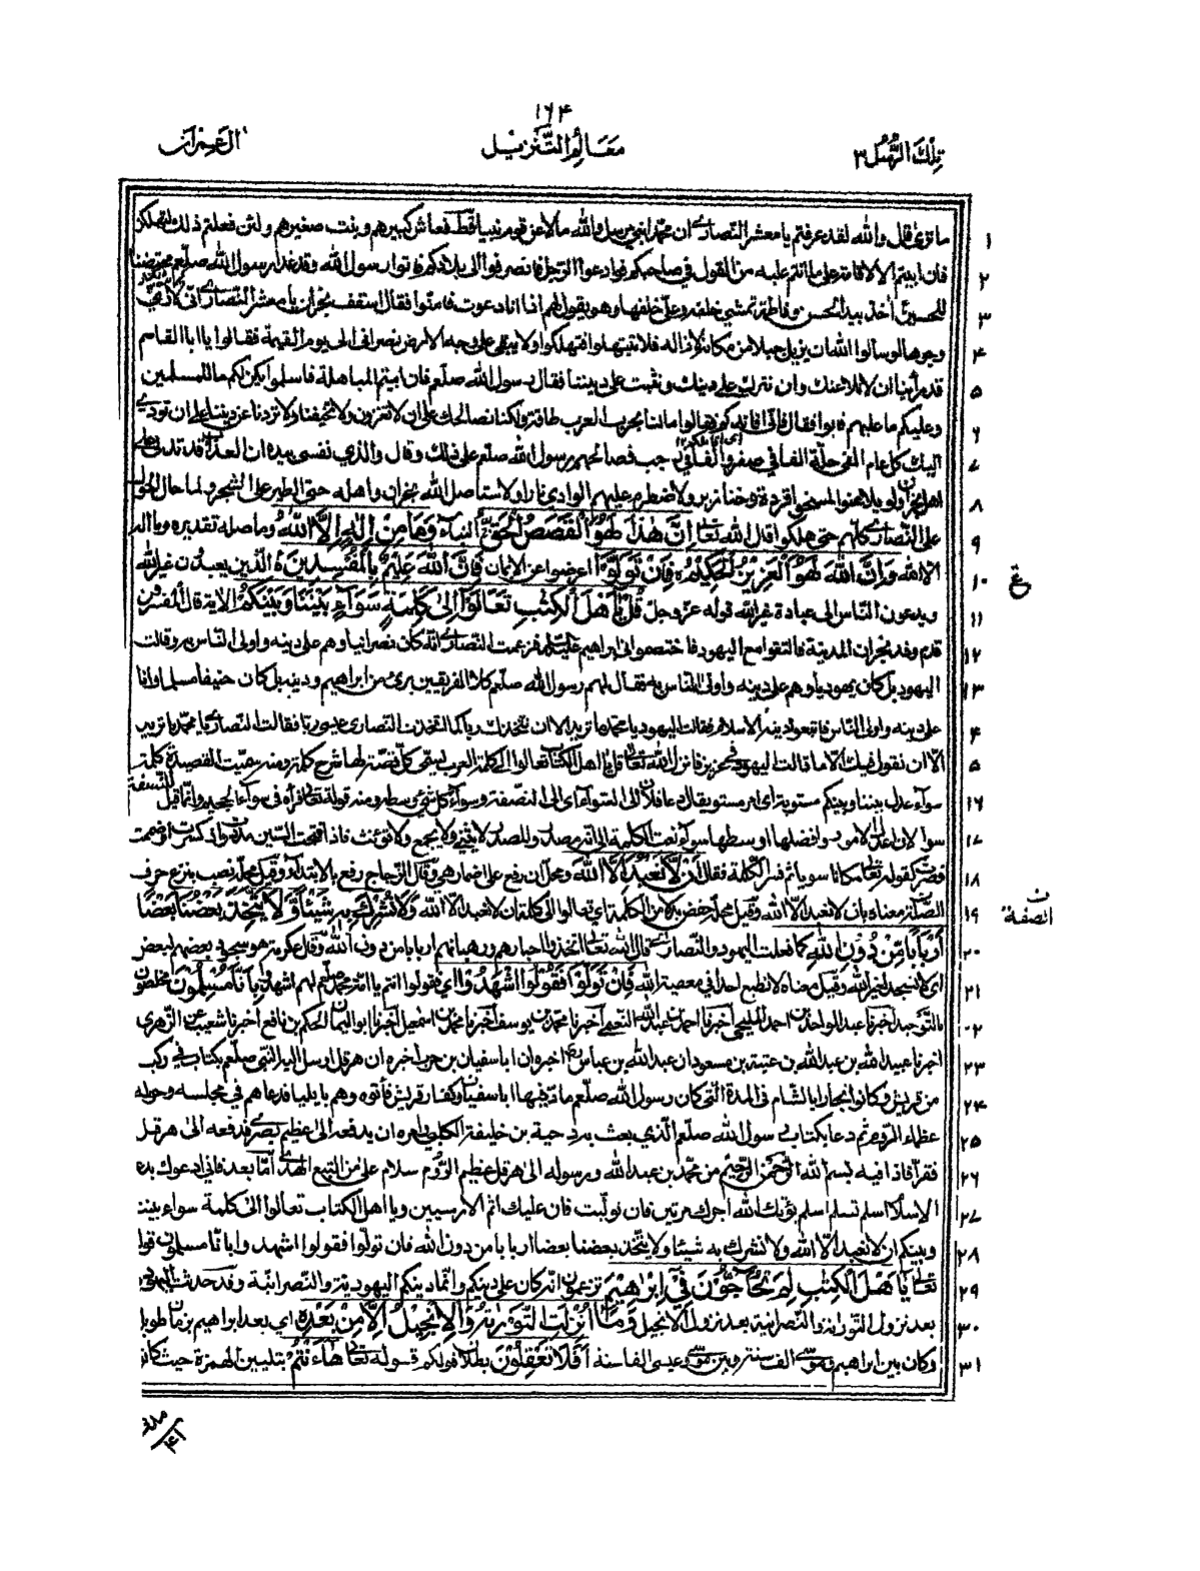 ١٦٤
تِلْكَ الرُّسُل ٣
مَعَالِمُ التَّنْزِيْل
اٰل عِمْرَان
١ ما ترى قال والله لقد عرفتم يا معشر النصارى ان محمدا نبي مرسل والله ما لاعن قوم نبيا قط فعاش كبيرهم ونبت صغيرهم ولئن فعلتم ذلك لتهلكن
٢ فان ابيتم الا الاقامة على ما انتم عليه من القول في صاحبكم فوادعوا الرجل فانصرفوا الى بلادكم فاتوا رسول الله وقد غدا رسول الله صلعم محتضنا
٣ للحسين اخذ بيد الحسن وفاطمة تمشي خلفه وعلي خلفها وهو يقول لهم اذا انا دعوت فامنوا فقال اسقف نجران يا معشر النصارى اني لارى
٤ وجوها لو سالوا الله ان يزيل جبلا من مكانه لازاله فلا تبتهلوا فتهلكوا ولا يبقى على وجه الارض نصراني الى يوم القيمة فقالوا يا ابا القاسم
٥ قد راينا ان لا نلاعنك وان نتركك على دينك ونثبت على ديننا فقال رسول الله صلعم فان ابيتم المباهلة فاسلموا يكن لكم ما للمسلمين
٦ وعليكم ما عليهم فابوا فقال فاني انابذكم فقالوا ما لنا بحرب العرب طاقة ولكنا نصالحك على ان لا تغزونا ولا تخيفنا ولا تردنا عن ديننا على ان نودي
٧ اليك كل عام الفي حلة الفا في صفر والفا في رجب فصالحهم رسول الله صلعم على ذلك وقال والذي نفسي بيده ان العذاب قد تدلى على
٨ اهل نجران ولو تلاعنوا لمسخوا قردة وخنازير ولاضطرم عليهم الوادي نارا ولاستاصل الله نجران واهله حتى الطير على الشجر ولما حال الحول
٩ على النصارى كلهم حتى هلكوا قال الله تعالى اِنَّ هٰذَا لَهُوَ الْقَصَصُ الْحَقُّ النبأ وَمَا مِنْ اِلٰهٍ اِلَّا اللّٰهُ وما صلة تقديره وما اله
١٠ الا الله وَاِنَّ اللّٰهَ لَهُوَ الْعَزِيْزُ الْحَكِيْمُ فَاِنْ تَوَلَّوْا اعرضوا عن الايمان فَاِنَّ اللّٰهَ عَلِيْمٌ بِالْمُفْسِدِيْنَ الذين يعبدون غير الله
ع
١١ ويدعون الناس الى عبادة غير الله قوله عز وجل قُلْ يٰاَهْلَ الْكِتٰبِ تَعَالَوْا اِلٰى كَلِمَةٍ سَوَاۤءٍ بَيْنَنَا وَبَيْنَكُمْ الاية قال المفسرون
١٢ قدم وفد نجران المدينة فالتقوا مع اليهود فاختصموا في ابراهيم عليه السلام فزعمت النصارى انه كان نصرانيا وهم على دينه واولى الناس به وقالت
١٣ اليهود بل كان يهوديا وهم على دينه واولى الناس به فقال لهم رسول الله صلعم كلا الفريقين برئ من ابراهيم ودينه بل كان حنيفا مسلما وانا
٤ على دينه واولى الناس به فاتبعوا دينه الاسلام فقالت اليهود يا محمد ما تريد الا ان نتخذك ربا كما اتخذت النصارى عيسى ربا فقالت النصارى يا محمد ما تريد
٥ الا ان نقول فيك الا ما قالت اليهود في عزير فانزل الله تعالى قل يا اهل الكتاب تعالوا الى كلمة العرب تسمي كل قصة لها شرح كلمة ومنه سميت القصيدة كلمة
١٦ سواء عدل بيننا وبينكم مستوية اي امر مستو يقال دعا فلان الى السواء اي الى النصفة وسواء كل شيء وسطه ومنه قوله تعالى فراه في سواء الجحيم وانما قيل للنصفة
١٧ سواء لان اعدل الامور وافضلها اوسطها وسواء نعت الكلمة الا انه مصدر والمصدر لا يثنى ولا يجمع ولا يؤنث فاذا فتحت السين مددت واذا كسرت او ضممت
١٨ قصرت كقوله تعالى مكانا سوى ثم فسر الكلمة فقال اَنْ لَّا نَعْبُدَ اِلَّا اللّٰهَ ومحل ان رفع على اضمار هي وقال الزجاج رفع بالابتداء وقيل محله نصب بنزع حرف
١٩ الصلة معناه بان لا نعبد الا الله وقيل محله خفض بدلا من الكلمة اي تعالوا الى كلمة ان لا نعبد الا الله وَلَا نُشْرِكَ بِهٖ شَيْئًا وَّلَا يَتَّخِذَ بَعْضُنَا بَعْضًا
ن
الصفة
٢٠ اَرْبَابًا مِّنْ دُوْنِ اللّٰهِ كما فعلت اليهود والنصارى قال الله تعالى اتخذوا احبارهم ورهبانهم اربابا من دون الله وقال عكرمة هو سجود بعضهم لبعض
٢١ اي لا نسجد لغير الله وقيل معناه لا نطيع احدا في معصية الله فَاِنْ تَوَلَّوْا فَقُوْلُوا اشْهَدُوْا اي فقولوا انتم يا امة محمد صلعم لهم اشهدوا بِاَنَّا مُسْلِمُوْنَ مخلصون
٢٢ بالتوحيد اخبرنا عبد الواحد بن احمد المليحي اخبرنا احمد بن عبد الله النعيمي اخبرنا محمد بن يوسف اخبرنا محمد بن اسمعيل اخبرنا ابو اليمان الحكم بن نافع اخبرنا شعيب عن الزهري
٢٣ اخبرنا عبيد الله بن عبد الله بن عتبة بن مسعود ان عبد الله بن عباس اخبره ان ابا سفيان بن حرب اخبره ان هرقل ارسل اليه النبي صلعم بكتاب في ركب
٢٤ من قريش وكانوا تجارا بالشام في المدة التي كان رسول الله صلعم ماد فيها ابا سفيان وكفار قريش فأتوه وهم بايليا فدعاهم في مجلسه وحوله
٢٥ عظماء الروم ثم دعا بكتاب رسول الله صلعم الذي بعث به دحية بن خليفة الكلبي وامره ان يدفعه الى عظيم بصرى فدفعه الى هرقل
٢٦ فقرأ فاذا فيه بسم الله الرحمن الرحيم من محمد بن عبد الله ورسوله الى هرقل عظيم الروم سلام على من اتبع الهدى أما بعد فاني ادعوك بدعاية
٢٧ الاسلام اسلم تسلم اسلم يؤتك الله اجرك مرتين فان توليت فان عليك اثم الاريسيين ويا اهل الكتاب تعالوا الى كلمة سواء بيننا
٢٨ وبينكم ان لا نعبد الا الله ولا نشرك به شيئا ولا يتخذ بعضنا بعضا اربابا من دون الله فان تولوا فقولوا اشهدوا بانا مسلمون قوله
٢٩ تعالى يٰاَهْلَ الْكِتٰبِ لِمَ تُحَاۤجُّوْنَ فِيْ اِبْرٰهِيْمَ تزعمون انه كان على دينكم وانما دينكم اليهودية والنصرانية وقد حدثت اليهودية
٣٠ بعد نزول التوراة والنصرانية بعد نزول الانجيل وَمَا اُنْزِلَتِ التَّوْرٰىةُ وَالْاِنْجِيْلُ اِلَّا مِنْ بَعْدِهٖ اي بعد ابراهيم بزمان طويل
٣١ وكان بين ابراهيم وموسى الف سنة وبين موسى وعيسى الفا سنة اَفَلَا تَعْقِلُوْنَ بطلان قولكم قوله تعالى هٰاَنْتُمْ بتليين الهمزة حيث كان